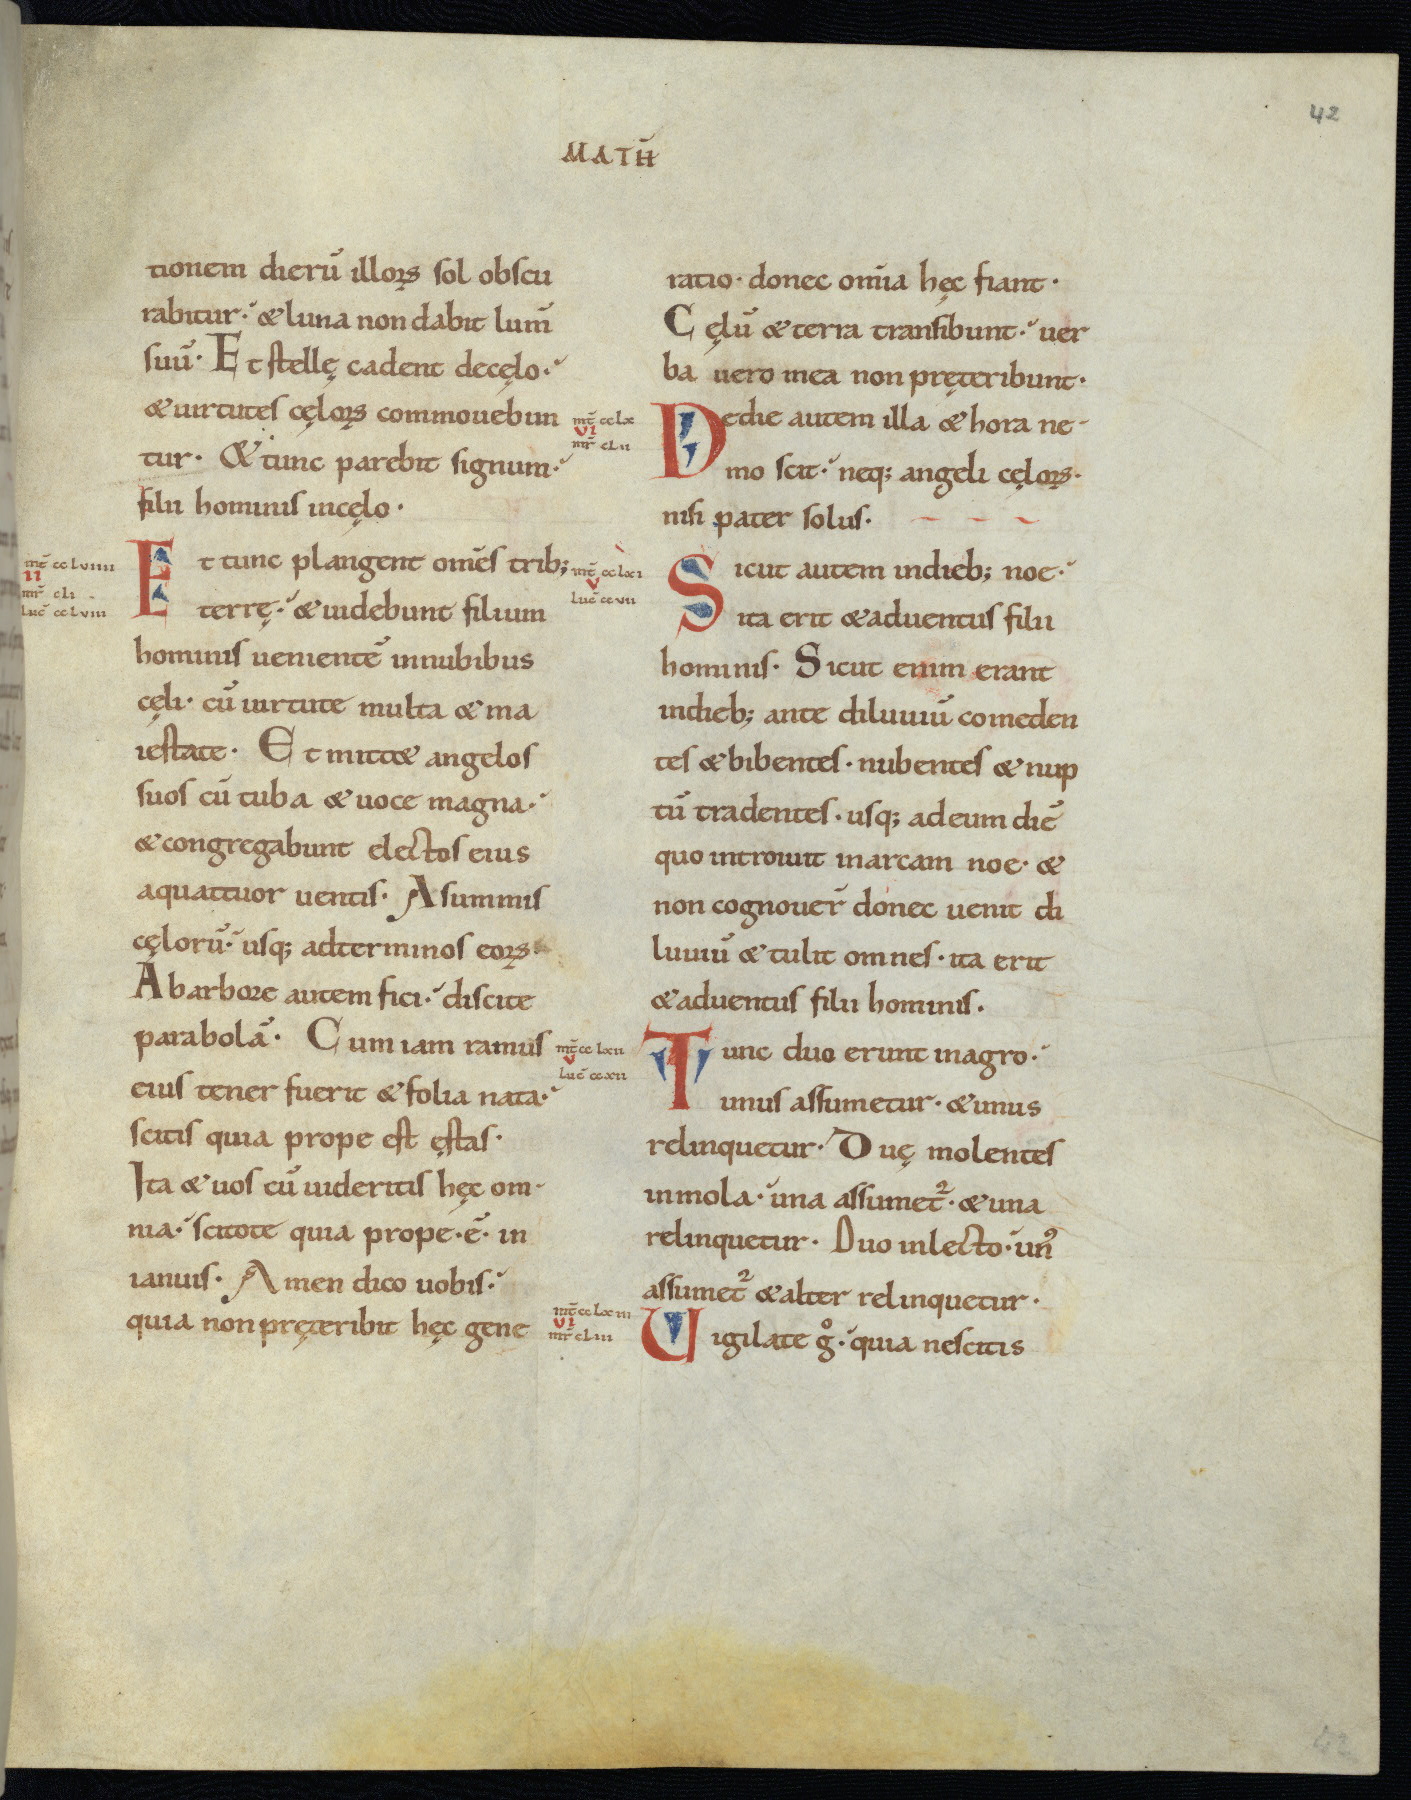 42
MATH̄
tionem dierū illoꝝ sol obscu
rabitur· & luna non dabit lum̄
suū· Et stellę cadent decęlo·
& uirtutes cęloꝝ commouebun
tur· & tunc parebit signum·
filii hominis incęlo·
Et tunc plangent om̄s trib;
terrę· & uidebunt filium
hominis uenientē innubibus
cęli· cū uirtute multa & ma
iestate· Et mitt& angelos
suos cū tuba & uoce magna·
& congregabunt electos eius
aquattuor uentis· Asummis
cęlorū· usq; adterminos eoꝝ·
Abarbore autem fici· discite
parabolā· Cum iam ramus
eius tener fuerit & folia nata·
scitis quia prope est ęstas·
Ita & uos cū uideritis hęc om
nia· scitote quia prope·ē· in
ianuis· Amen dico uobis·
quia non pręteribit hęc gene
mt̄ cclviiii
ii
mr̄ cli
luc̄ cclviii
ratio· donec om̄ia hęc fiant·
Cęlū & terra transibunt· uer
ba uero mea non pręteribunt·
Dedie autem illa & hora ne
mo scit· neq; angeli cęloꝝ·
nisi pater solus·
Sicut autem indieb; noe·
ita erit & aduentus filii
hominis· Sicut enim erant
indieb; ante diluuiū comeden
tes & bibentes· nubentes & nup
tū tradentes· usq; adeum diē
quo introiuit inarcam noe· &
non cognouer̄ donec uenit di
luuiū & tulit omnes· ita erit
& aduentus filii hominis·
Tunc duo erunt inagro·
unus assumetur· & unus
relinquetur· Duę molentes
inmola· una assumet᷑· & una
relinquetur· Duo inlecto· unꝰ
assumet᷑ & alter relinquetur·
Uigilate gͦ· quia nescitis
mt̄ cclx
vi
mr̄ clii
mt̄ cclxi
v
luc̄ ccvii
mt̄ cclxii
v
luc̄ ccxii
mt̄ cclxiii
vi
mr̄ cliii
42